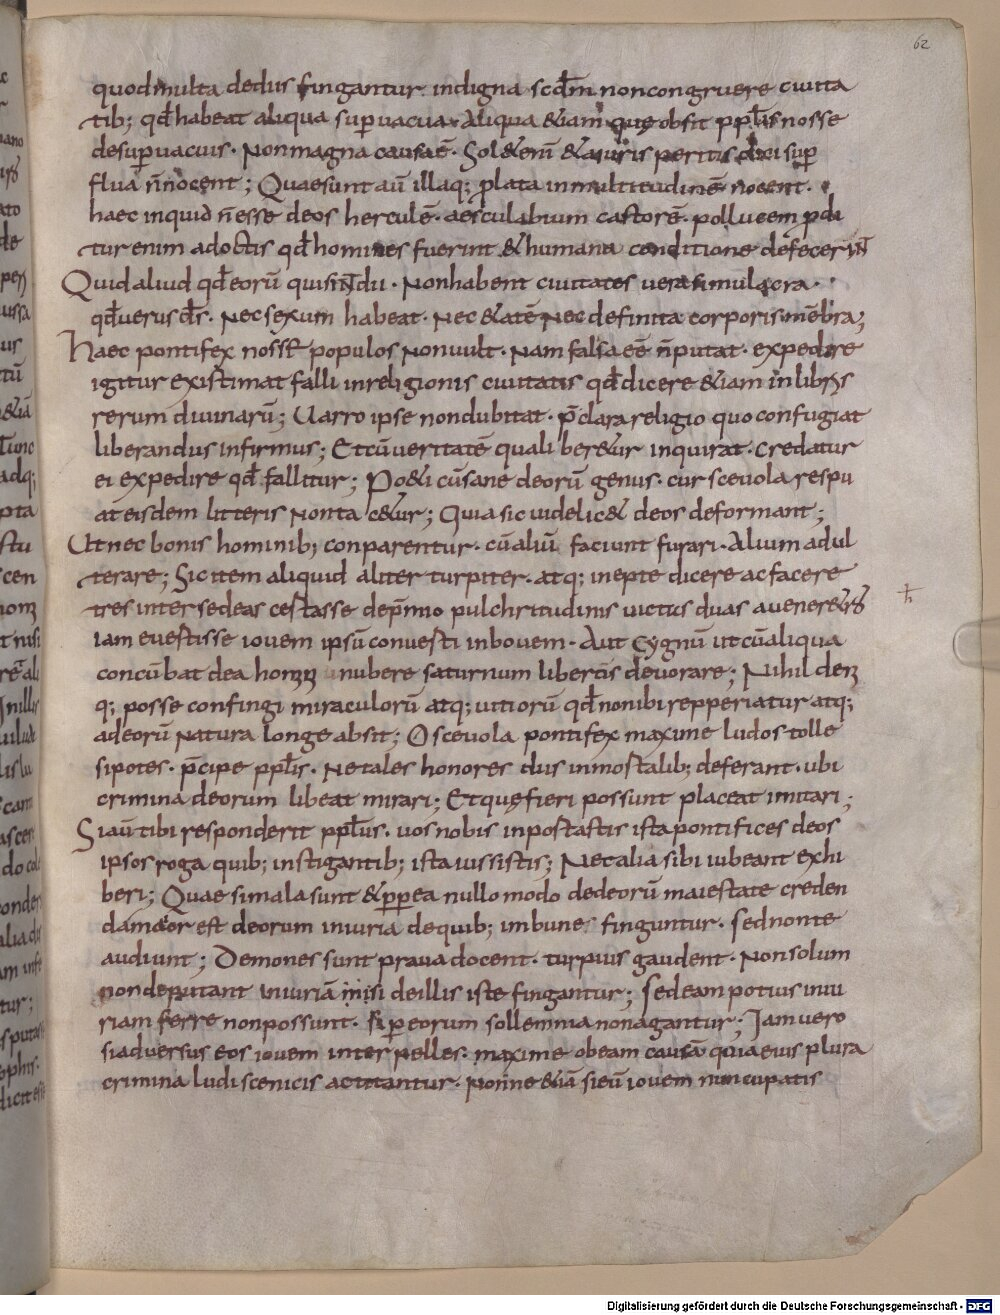 62
quod multa dediis fingantur indigna scd̄m non congruere ciuita
tib; qd̄ habeat aliqua superuacua. Aliqua &iam que obsit ppl̄is nosse
de superuacuis. Non magna causa ē. Sol& enī & a iuris peritis dici super
flua n̄ nocent; Quae sunt aū illa q; prolata in multitudinē nocent.
haec inquid n̄ esse deos herculē. aesculabium castorē. pollucem prodi
tur enim a doctis qd̄ homines fuerint & humana conditione defecerint
Quid aliud qd̄ eorū qui sint dii. Non habent ciuitates uera simulacra.
qd̄ uerus d̄s. Nec sexum habeat. Nec &atē Nec definita corporis mēbra;
Haec pontifex nosse populos Non uult. Nam falsa eē n̄ putat. expedire
igitur existimat falli in religionis ciuitatis qd̄ dicere &iam in libris
rerum diuinarū; Uarro ipse non dubitat. p̄clara religio quo confugiat
liberandus infirmus; Et cū ueritatē quali ber&ur inquirat. credatur
ei expedire qd̄ fallitur; Po&i cū sane deorū genus. cur sceuola respu
at eisdem litteris Non tac&ur; Quia sic uidelic& deos deformant;
Ut nec bonis hominib; conparentur. cū aliū faciunt furari. Alium adul
terare; Sic item aliquid aliter turpiter. atq; inepte dicere ac facere
tres inter se deas cestasse de p̄mio pulchritudinis uictus duas a uenere
iam euestisse iouem ipsū conuesti in bouem. Aut Cygnū ut cū aliqua
concūbat dea nubere saturnum libertis deuorare; Nihil den
q; posse confingi miraculorū atq; uitiorū qd̄ non ibi repperiatur atq;
a deorū Natura longe absit; O sceuola pontifex maxime ludos tolle
si potes. p̄cipe ppl̄is. Ne tales honores diis inmostalib; deferant. ubi
crimina deorum libeat mirari; Et que fieri possunt placeat imitari;
Si aūt tibi responderit ppl̄us. uos nobis inpostastis ista pontifices deos
ipsos roga quib; instigantib; ista iussistis; Ne talia sibi iubeant exhi
beri; Quae si mala sunt & propterea nullo modo de deorū maiestate creden
da maior est deorum iniuria de quib; inbune finguntur. sed non te
audiunt; Demones sunt praua docent. turpius gaudent. Non solum
non deputant iniuriā nisi de illis iste fingantur; sed eam potius iniu
riam ferre non possunt. si per eorum sollemnia non agantur; Iam uero
si aduersus eos iouem interpelles. maxime ob eam causā quia eius plura
crimina ludi scenicis actitantur. Nonne &iā si eū iouem nuncupatis
Digitalisierung gefördert durch die Deutsche Forschungsgemeinschaft - DFG